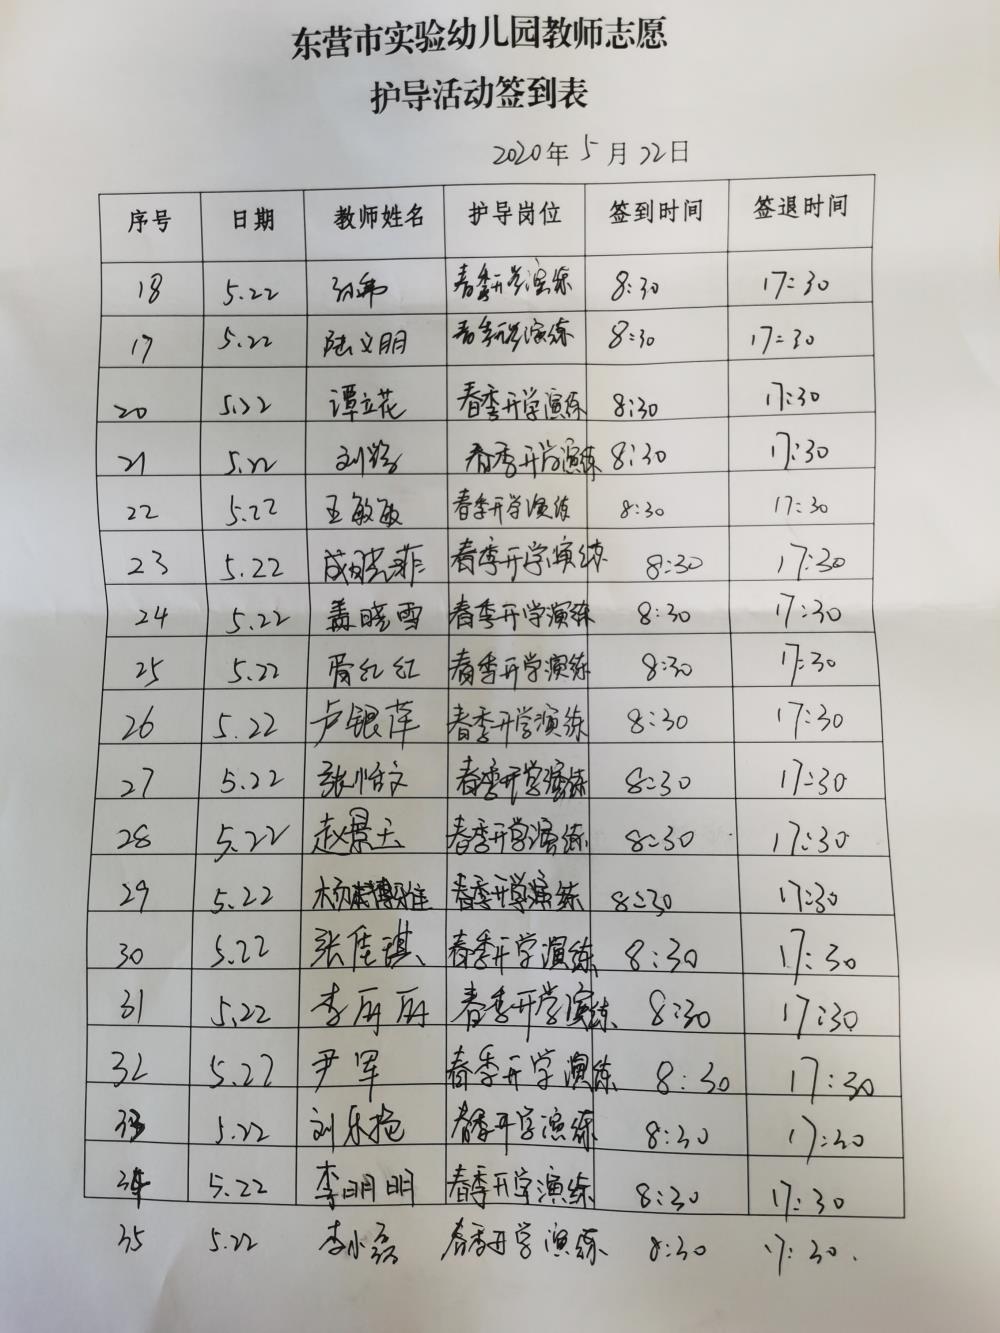 东营市实验幼儿园教师志愿
护导活动签到表
2020年 5 月 22日
序号 日期 教师姓名 护导岗位 签到时间 签退时间
18 5.22 春季开学演练 8:30 17:30
17 5.22 陆文明 春季开学演练 8:30 17:30
20 5.22 谭立花 春季开学演练 8:30 17:30
21 5.22 春季开学演练 8:30 17:30
22 5.22 王敏敏 春季开学演练 8:30 17:30
23 5.22 成晓菲 春季开学演练 8:30 17:30
24 5.22 盖晓雪 春季开学演练 8:30 17:30
25 5.22 春季开学演练 8:30 17:30
26 5.22 卢银萍 春季开学演练 8:30 17:30
27 5.22 张怡文 春季开学演练 8:30 17:30
28 5.22 赵景玉 春季开学演练 8:30 17:30
29 5.22 春季开学演练 8:30 17:30
30 5.22 张佳琪 春季开学演练 8:30 17:30
31 5.22 李丽丽 春季开学演练 8:30 17:30
32 5.22 尹军 春季开学演练 8:30 17:30
33 5.22 春季开学演练 8:30 17:30
34 5.22 李明明 春季开学演练 8:30 17:30
35 5.22 李小磊 春季开学演练 8:30 17:30.